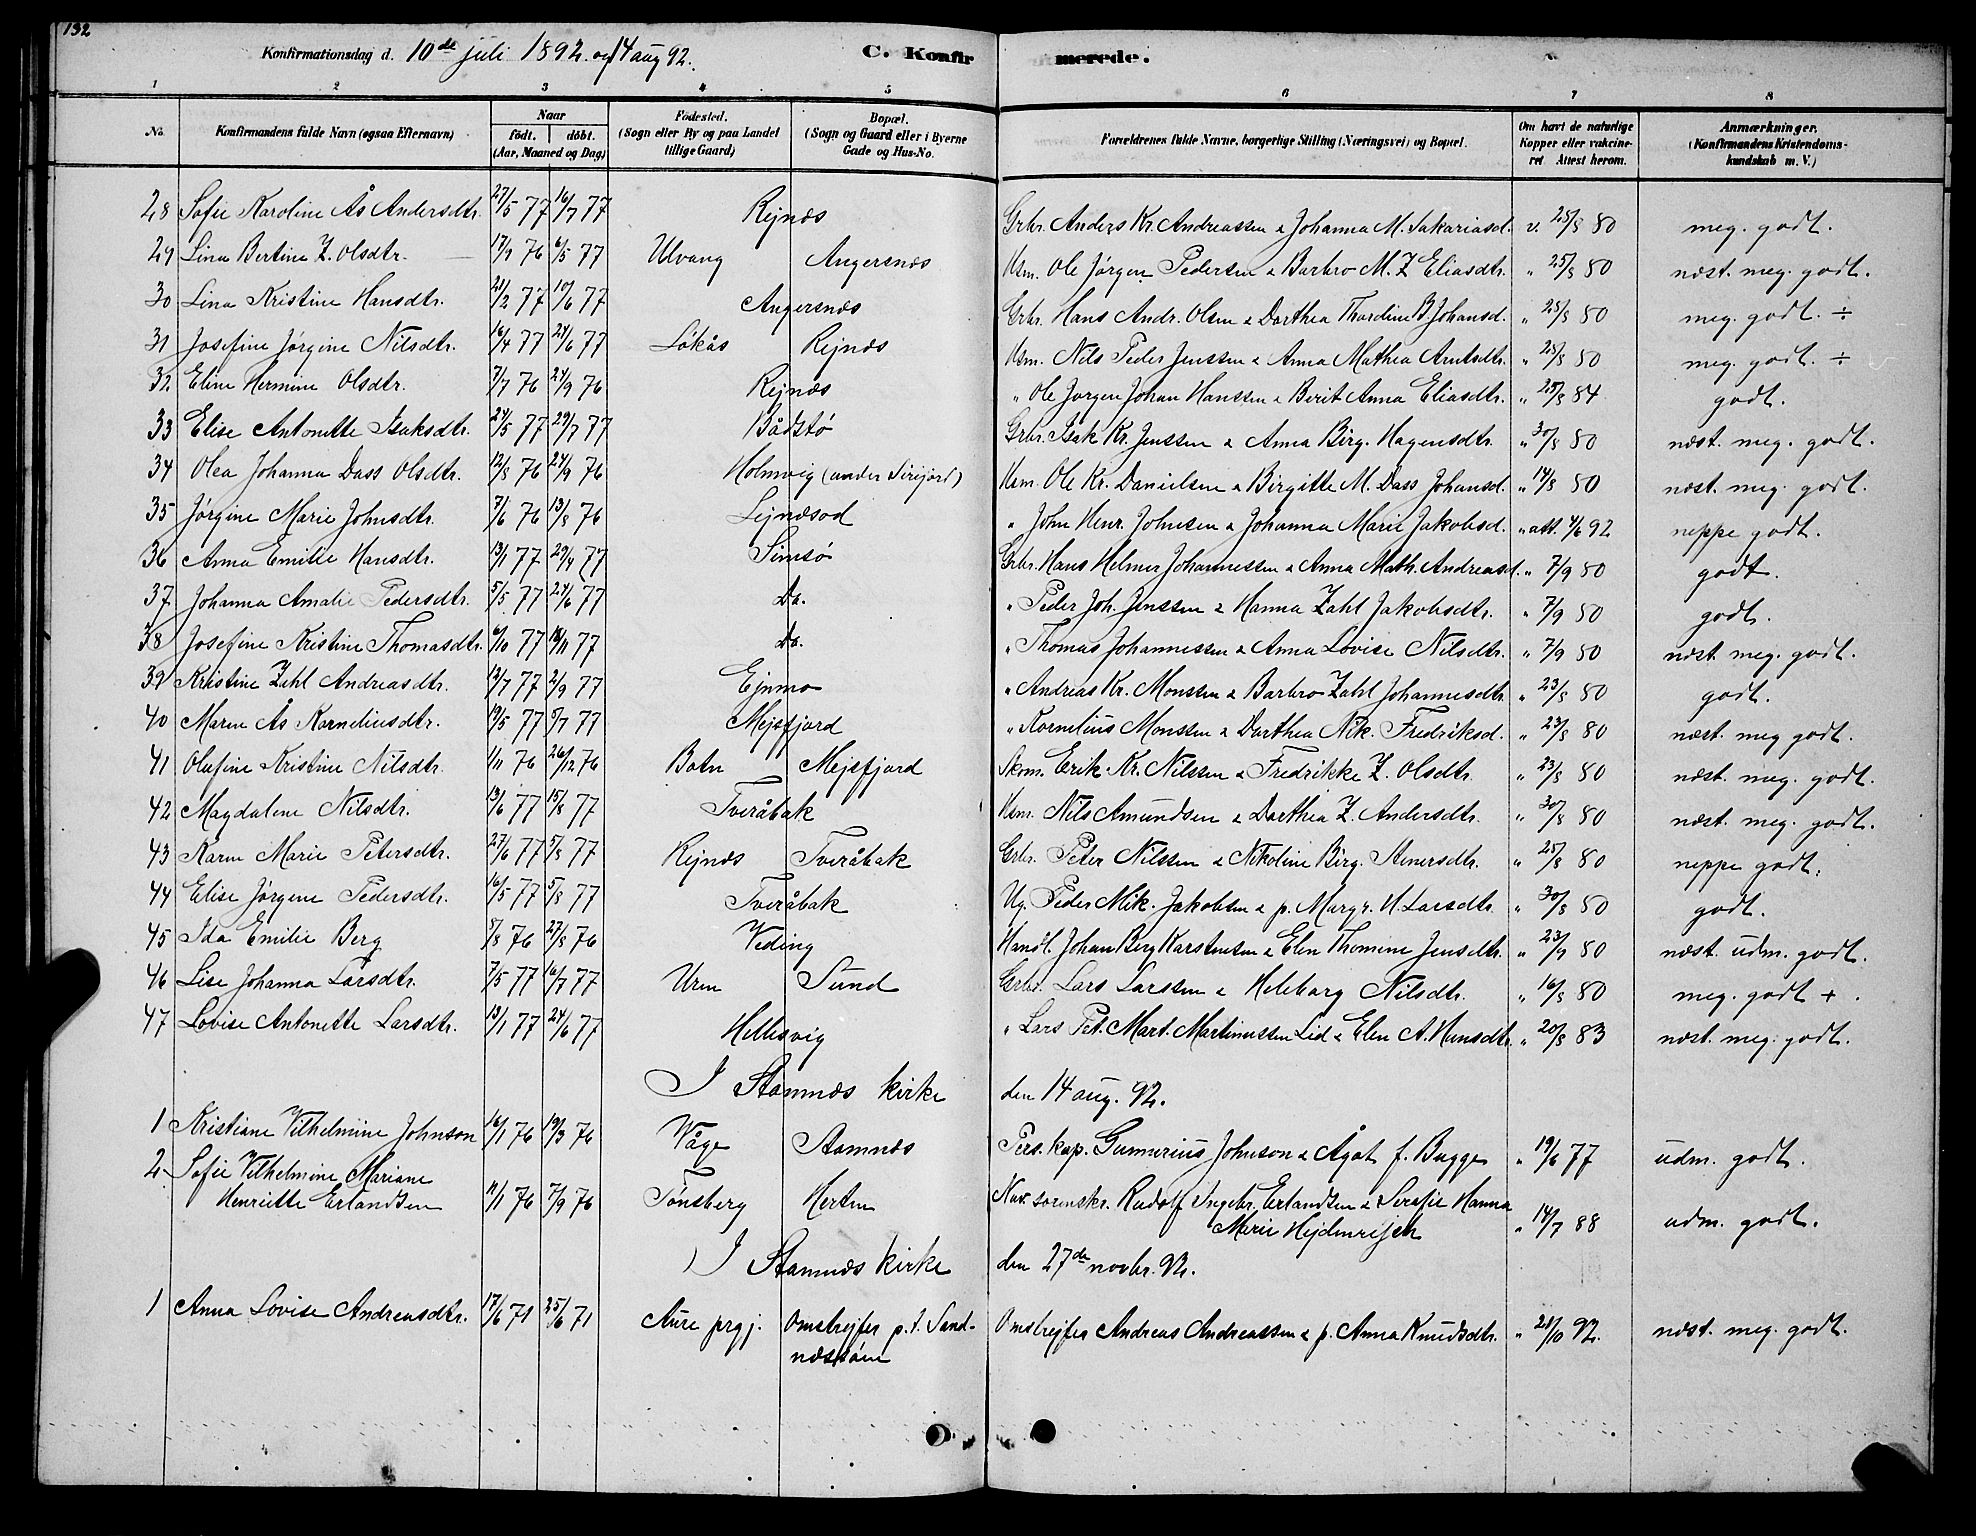 132
Konfirmationsdag d. 10de juli 1892. og 14 aug 92.
C. Konfirmerede.
1 2 3 4 5 6 7 8
No. Konfirmandens fulde Navn (ogsaa Efternavn) Naar födt. döbt. (Aar, Maaned og Dag) Födested. (Sogn eller By og paa Landet tillige Gaard) Bopæl. (Sogn og Gaard eller i Byerne Gade og Hus-No. Forældrenes fulde Navne, borgerlige Stilling (Næringsvei) og Bopæl. Om havt de naturlige Kopper eller vakcineret. Attest herom. Anmærkninger. (Konfirmandens Kristendomskundskab m. V.)
28 Sofie Karoline Ås Andersdtr. 27/5 77 16/7 77 Rejnæs Grbr. Anders Kr. Andreassen & Johanna M. Sakariasd. v. 25/8 80 meg. godt.
29 Lina Bertine Z. Olsdtr. 17/9 76 6/5 77 Ulvang Angersnæs Hsm. Ole Jørgen Pedersen & Barbro M. Z Eliasdtr. " 25/8 80 næst. meg. godt.
30 Lina Kristine Hansdtr. 21/2 77 10/6 77 Angersnæs Grbr. Hans Andr. Olsen & Dorthea Thordine B. Johansd. " 25/8 80 meg. godt. ÷
31 Josefine Jørgine Nilsdtr. 16/4 77 24/6 77 Løkås Rejnæs Hsm. Nils Peder Jenssen & Anna Mathea Arntsdtr. " 25/8 80 meg. godt. ÷
32 Eline Hermine Olsdtr. 7/7 76 24/9 76 Rejnæs " Ole Jørgen Johan Hanssen & Berit Anna Eliasdtr. " 25/8 84 godt.
33 Elise Antonette Isaksdtr. 24/5 77 29/7 77 Bådstø Grbr. Isak Kr. Jenssen & Anna Birg. Hagensdtr. " 30/8 80 næst. meg. godt.
34 Olea Johanna Dass Olsdtr. 12/8 76 24/9 76 Holmvig (under Sirijord) Hsm. Ole Kr. Danielsen & Birgitte M. Dass Johansd. " 14/8 80 næst. meg. godt.
35 Jørgine Marie Johnsdtr. 7/6 76 13/8 76 Lejnæsod " John Henr. Johnsen & Johanna Marie Jakobsd. " att. 4/6 92 neppe godt.
36 Anna Emilie Hansdtr. 13/1 77 29/4 77 Simsø Grbr. Hans Helmer Johannessen & Anna Math. Andreasd. " 7/9 80 godt.
37 Johanna Amalie Pedersdtr. 5/5 77 24/6 77 Do. " Peder Joh. Jenssen & Hanna Zahl Jakobsdtr. " 7/9 80 godt.
38 Josefine Kristine Thomasdtr. 6/10 77 18/11 77 Do. " Thomas Johannessen & Anna Lovise Nilsdtr. " 7/9 80 næst. meg. godt.
39 Kristine Zahl Andreasdtr. 12/7 77 2/9 77 Ejnmo " Andreas Kr. Monssen & Barbro Zahl Johannesdtr " 23/8 80 godt.
40 Maren As Kornelinsdtr. 19/5 77 5/7 77 Mejsfjord " Kornelius Monssen & Dorthea Nik. Fredriksd. " 23/8 80 næst. meg godt.
41 Olufine Kristine Nilsdtr. 1/11 76 26/12 76 Botn Mejsfjord Erik Kr. Nilssen & Fredrikke Z. Olsdtr. " 23/8 80 næst. meg. godt.
42 Magdalene Nilsdtr. 13/6 77 15/8 77 Tveråbak Hsm. Nils Amundsen & Dorthea Z. Andersdtr. " 30/8 80 næst. meg. godt.
43 Karen Marie Petersdtr. 27/6 77 5/8 77 Rejnæs Tveråbak Grbr. Peter Nilssen & Nikoline Birg. Stenersdtr. " 25/8 80 neppe godt.
44 Elise Jørgene Pedersdtr. 16/5 77 5/8 77 Tveråbak Ug. Peder Mik. Jakobsen & p. Margr. H. Larsdtr. " 30/8 80 godt.
45 Ida Emilie Berg 3/8 76 27/8 76 Veding Handl. Johan Berg Karstensen & Elen Thomine Jensdtr. " 23/9 80 næst. udm. godt.
46 Lise Johanna Larsdtr. 7/5 77 16/7 77 Uren Sund Grbr. Lars Larssen & Heleborg Nilsdtr. " 16/8 80 meg. godt +.
47 Lovise Antonette Larsdtr. 13/1 77 24/6 77 Hellesvig " Lars Pet. Mart. Martinussen Lid & Elen A. Hansdtr. " 20/8 83 næst. meg. godt.
I Stamnæs kirke den 14 aug. 92.
1 Kristiane Vilhelmine Johnson 16/1 76 19/3 76 Våge Stamnæs Pers. kap. Gunnerius Johnson & Ågot f. Bugge " 19/6 77 udm. godt.
2 Sofie Vilhelmine Mariane
Henriette Erlandsen 11/1 76 7/9 76 Tønsberg Herten sorenskr. Rudolf Ingebr. Erlandsen & Serafie Hanna
Marie Hejdenrejch " 14/7 88 udm. godt.
I Stamnæs kirke den 27de novbr. 92.
1 Anna Lovise Andreasdtr. 17/6 71 25/6 71 Aure prgj. Omstrejfer p. t. Sandnæssøen Omstrejfer Andreas Andreassen & p. Anna Knudsdtr. " 21/10 92. næst. meg. godt.